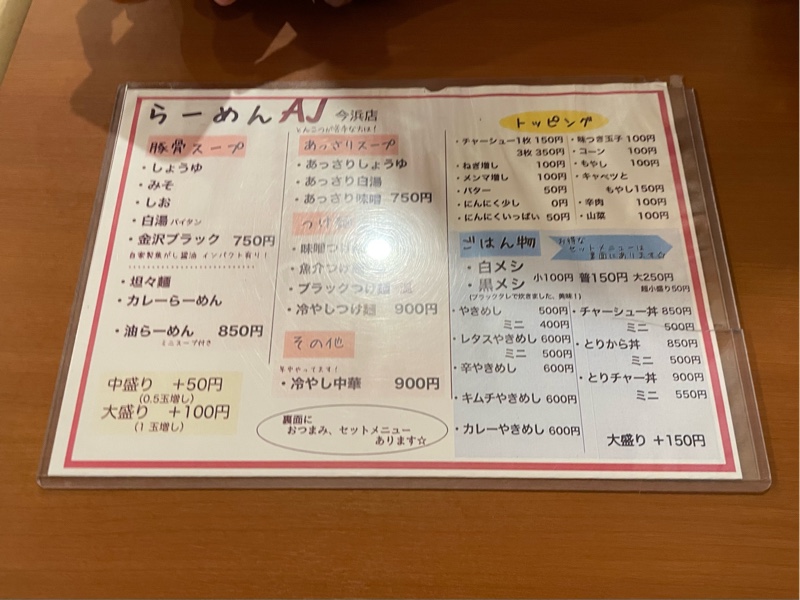 らーめんAJ 今浜店
豚骨スープ
・しょうゆ
・みそ
・しお
・白湯 パイタン
・金沢ブラック 750円
自家製焦がし醤油 インパクト有り!
・坦々麺
・カレーらーめん
・油らーめん 850円
ミニスープ付き
中盛り +50円
(0.5玉増し)
大盛り +100円
(1玉増し)
とんこつが苦手な方は!
あっさりスープ
・あっさりしょうゆ
・あっさり白湯
・あっさり味噌 750円
つけ麺
・味噌つけ
・魚介つけ
・ブラックつけ麺
・冷やしつけ麺 900円
その他
年中やってます!
・冷やし中華 900円
裏面に
おつまみ、セットメニュー
あります☆
トッピング
・チャーシュー1枚 150円
3枚 350円
・ねぎ増し 100円
・メンマ増し 100円
・バター 50円
・にんにく少し 0円
・にんにくいっぱい 50円
・味つき玉子 100円
・コーン 100円
・もやし 100円
・キャベツと
もやし150円
・辛肉 100円
・山菜 100円
ごはん物
お得な
セットメニューは
裏面にあります☆
・白メシ
・黒メシ 小100円 普150円 大250円
(ブラックタレで炊きました、美味!) 超小盛り50円
・やきめし 500円
ミニ 400円
・レタスやきめし 600円
ミニ 500円
・辛やきめし 600円
・キムチやきめし 600円
・カレーやきめし 600円
・チャーシュー丼 850円
ミニ 500円
・とりから丼 850円
ミニ 500円
・とりチャー丼 900円
ミニ 550円
大盛り +150円